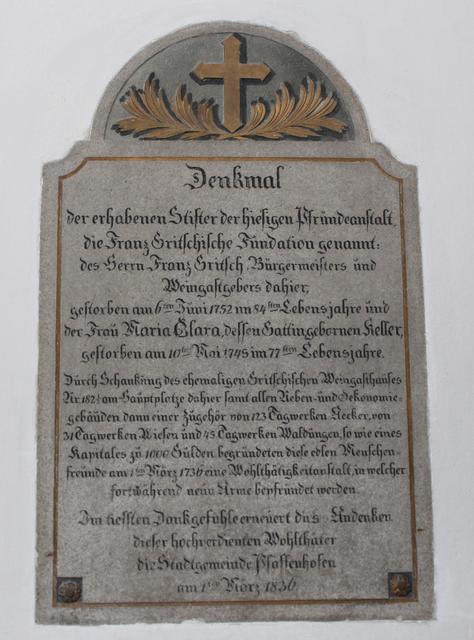 Denkmal
der erhabenen Stifter der hiesigen Pfründeanstalt,
die Franz Gritschische Fundation genannt:
des Herrn Franz Gritsch, Bürgermeisters und
Weingastgebers dahier,
gestorben am 6ten Juni 1752 im 84sten Lebensjahre und
der Frau Maria Clara, dessen Gattin gebornen Keller,
gestorben am 10ten Mai 1745 im 77sten Lebensjahre.
Durch Schankung des ehemaligen Gritschischen Weingasthauses
Nr. 182 am Hauptplatze dahier samt allen Neben- und Oekonomie-
gebäuden dann einer Zugehör von 123 Tagwerken Aecker, von
31 Tagwerken Wiesen und 45 Tagwerken Waldungen, so wie eines
Kapitales zu 1000 Gulden begründeten diese edlen Menschen-
freunde am 1ten März 1736 eine Wohlthätigkeitanstalt, in welcher
fortwährend neun Arme bepfründet werden.
Im tiefsten Dankgefühle erneuert das Andenken
dieser hochverdienten Wohlthäter
die Stadtgemeinde Pfaffenhofen
am 1ten März 1836.